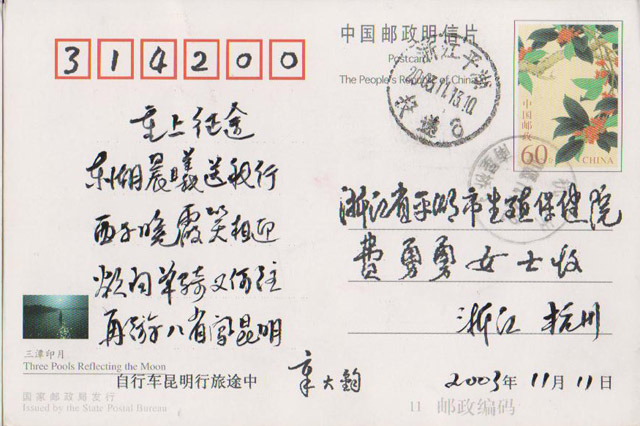 314200
中国邮政明信片
Postcard
The People's Republic of China
浙江平湖
2003.11.13.10
中国邮政
60分
CHINA
重上征途
东湖晨曦送我行
西子晚霞笑相迎
欲问单骑又何往
再游八省闯昆明
浙江省平湖市生殖保健院
费勇勇女士收
浙江 杭州
2003年11月11日
章大钧
自行车昆明行旅途中
三潭印月
Three Pools Reflecting the Moon
国家邮政局发行
Issued by the State Postal Bureau
11 邮政编码